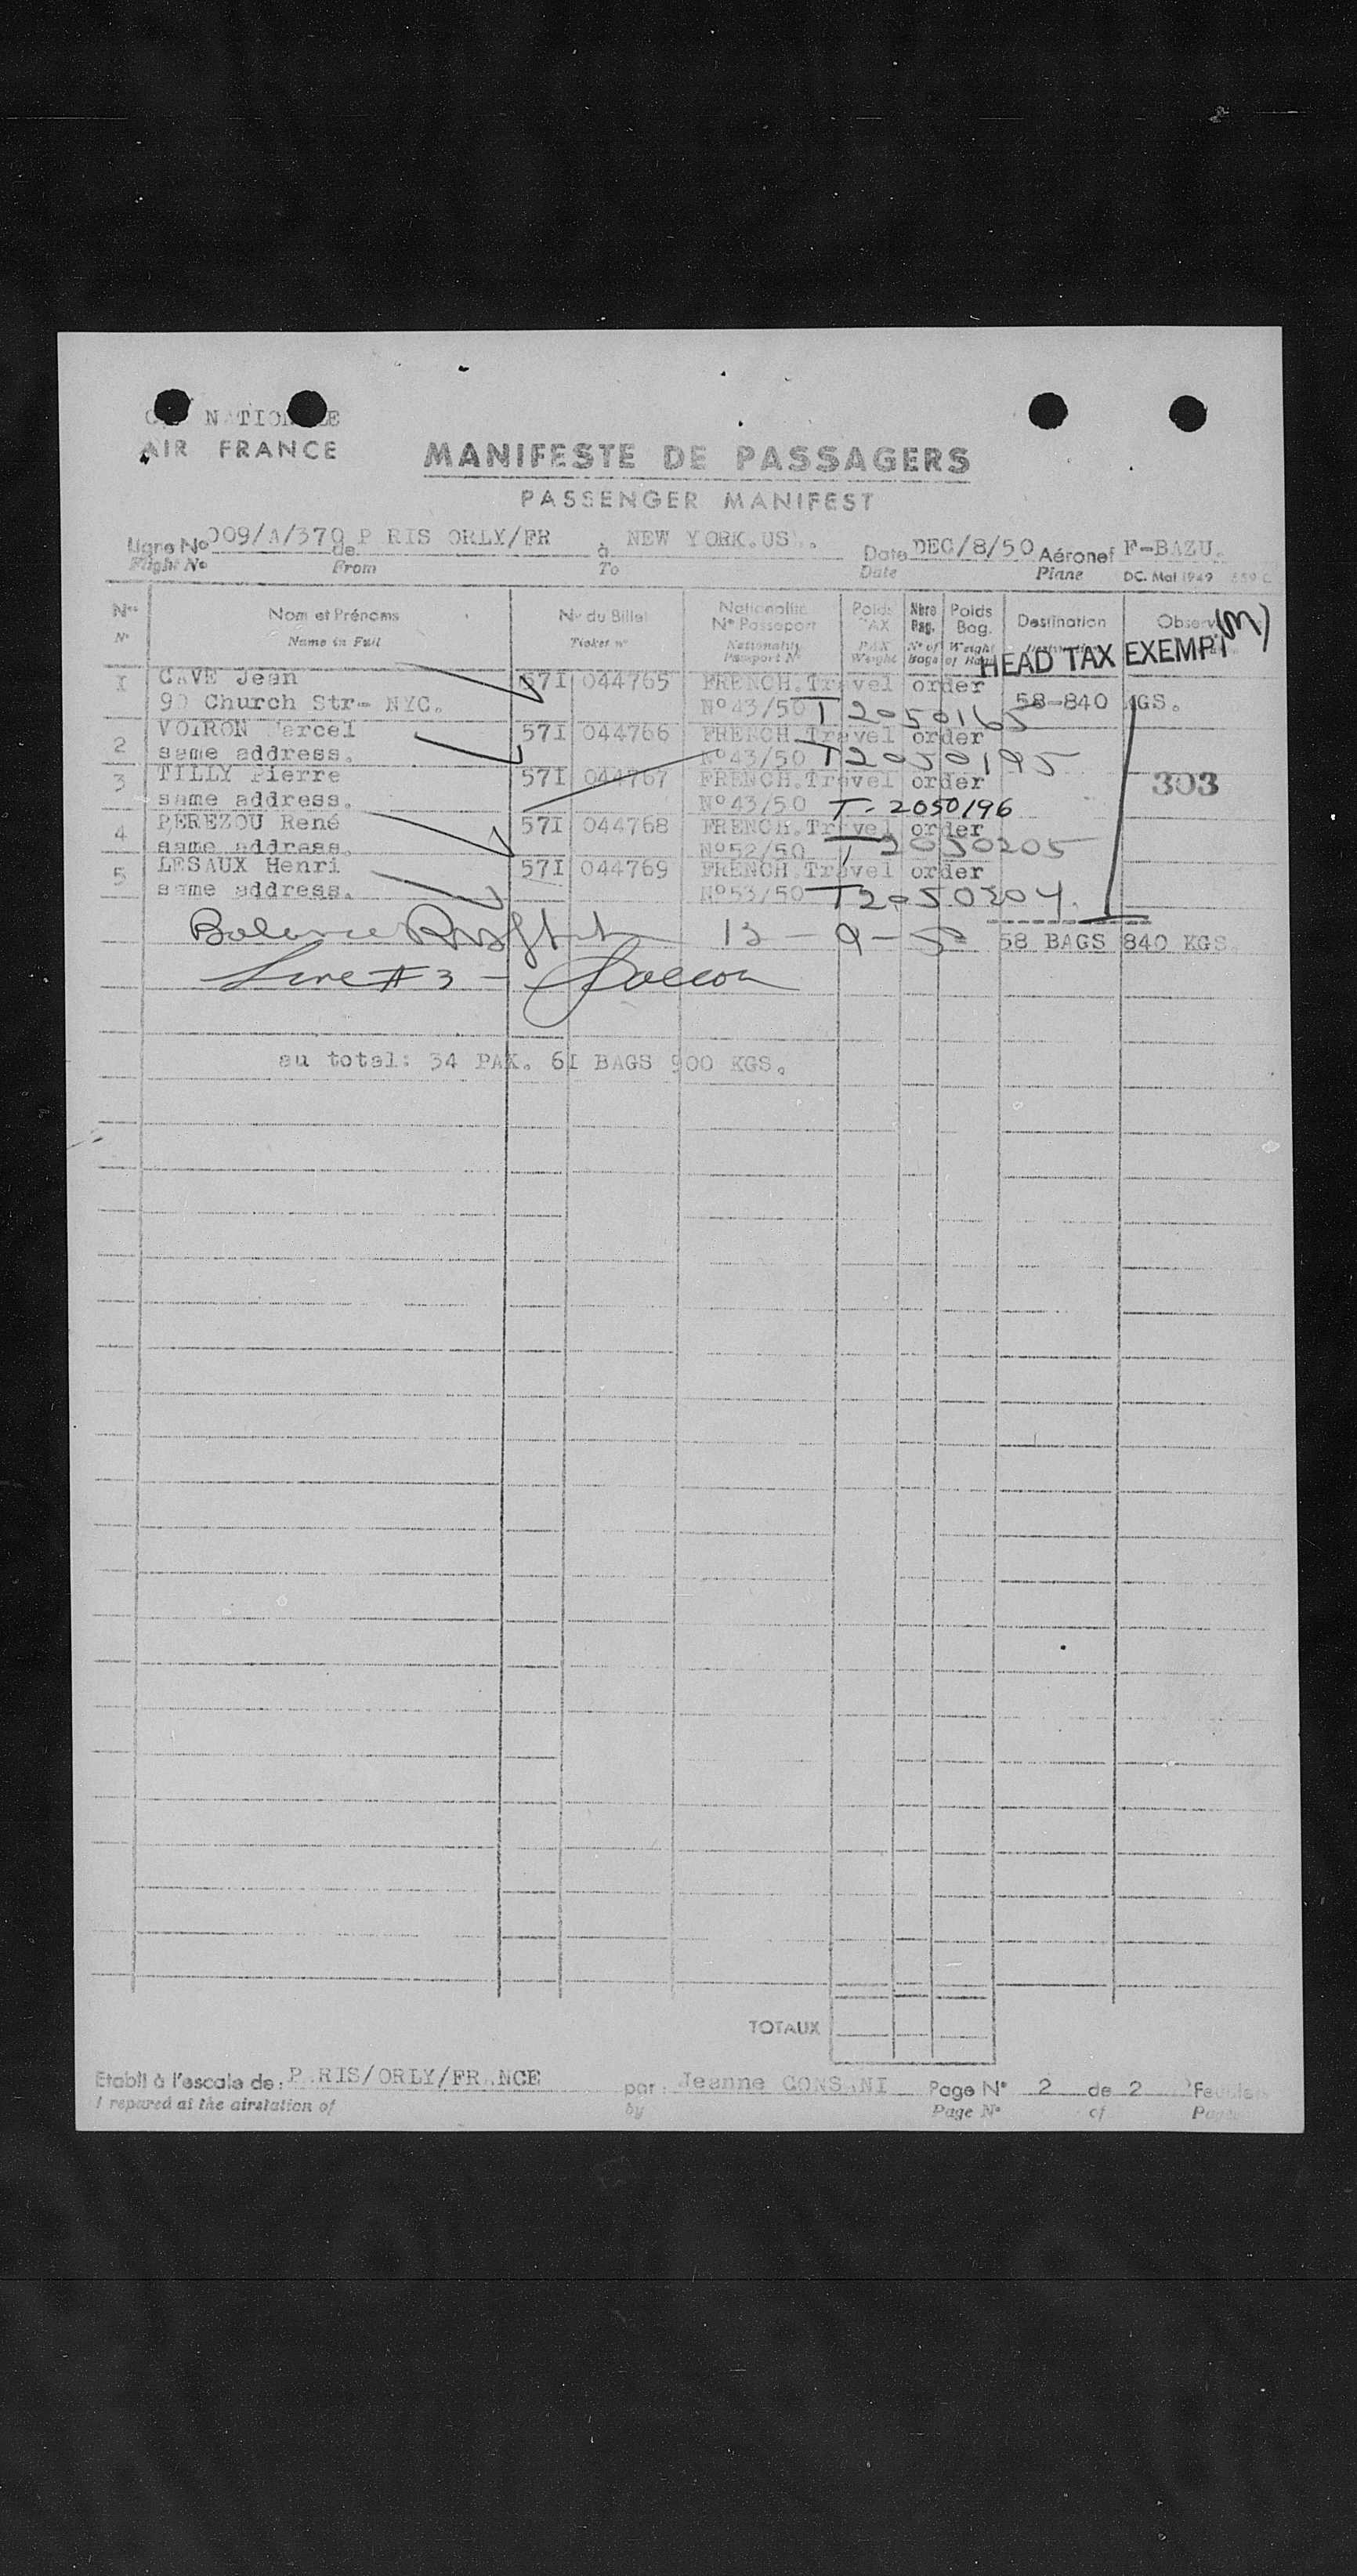 NATIONALE
AIR FRANCE
MANIFESTE DE PASSAGERS
PASSENGER MANIFEST
Ligne No 009/A/370 de P RIS ORLY/FR à NEW YORK.US . Date DEC/8/50 Aéronef F-BAZU.
Flight No From To Date Plane DC. Mai 1949
Nos Nom et Prénoms No du Billet Nationalité No Passeport Poids PAX Nbre Bag. Poids Bag. Destination Observ
No Name in Full Ticket no Nationality Passport No PAX Weight No of Bags Weight of
HEAD TAX EXEMPT (M)
1 CAVE Jean 57I 044765 FRENCH.Travel order
90 Church Str- NYC. No43/50 T 2050165 58-840 KGS.
2 VOIRON Marcel 57I 044766 FRENCH.Travel order
same address. No43/50 T2050195
3 TILLY Pierre 57I 044767 FRENCH.Travel order 303
same address. No43/50 T-2050196
4 PEREZOU René 57I 044768 FRENCH.Travel order
same address. No52/50 T2050205
5 LESAUX Henri 57I 044769 FRENCH.Travel order
same address. No53/50 T2050204.
58 BAGS 840 KGS.
Line #3 -
au total: 34 PAX. 6I BAGS 900 KGS.
TOTAUX
Etabli à l'escale de: P RIS/ORLY/FR NCE par: Jeanne CONSANI Page No 2 de 2 Feuilles
Prepared at the airstation of by Page No of Pages